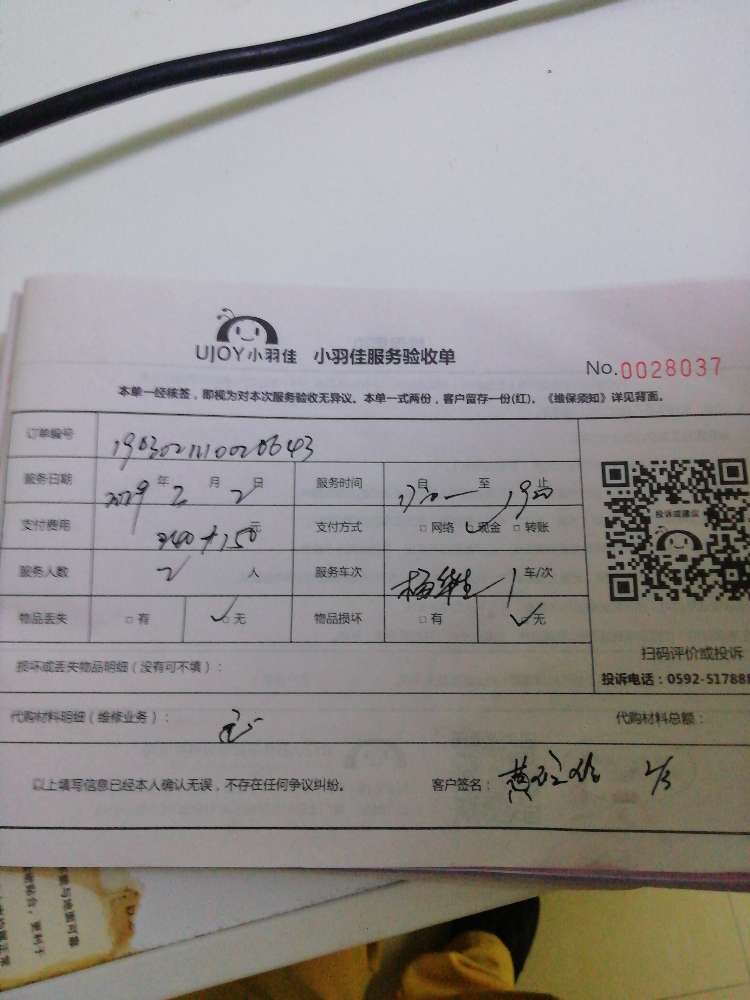 UJOY小羽佳 小羽佳服务验收单
No.0028037
本单一经核签，即视为对本次服务验收无异议。本单一式两份，客户留存一份(红)。《维保须知》详见背面。
订单编号
服务日期 2019年2月2日 服务时间 自 1730 至 1900 止
支付费用 340+150元 支付方式 □网络 □现金 □转账
服务人数 2 人 服务车次 1 车/次
物品丢失 □有 □无 物品损坏 □有 □无
投诉或建议
扫码评价或投诉
投诉电话：0592-51788
损坏或丢失物品明细（没有可不填）：
代购材料明细（维修业务）： 代购材料总额：
以上填写信息已经本人确认无误，不存在任何争议纠纷。 客户签名：